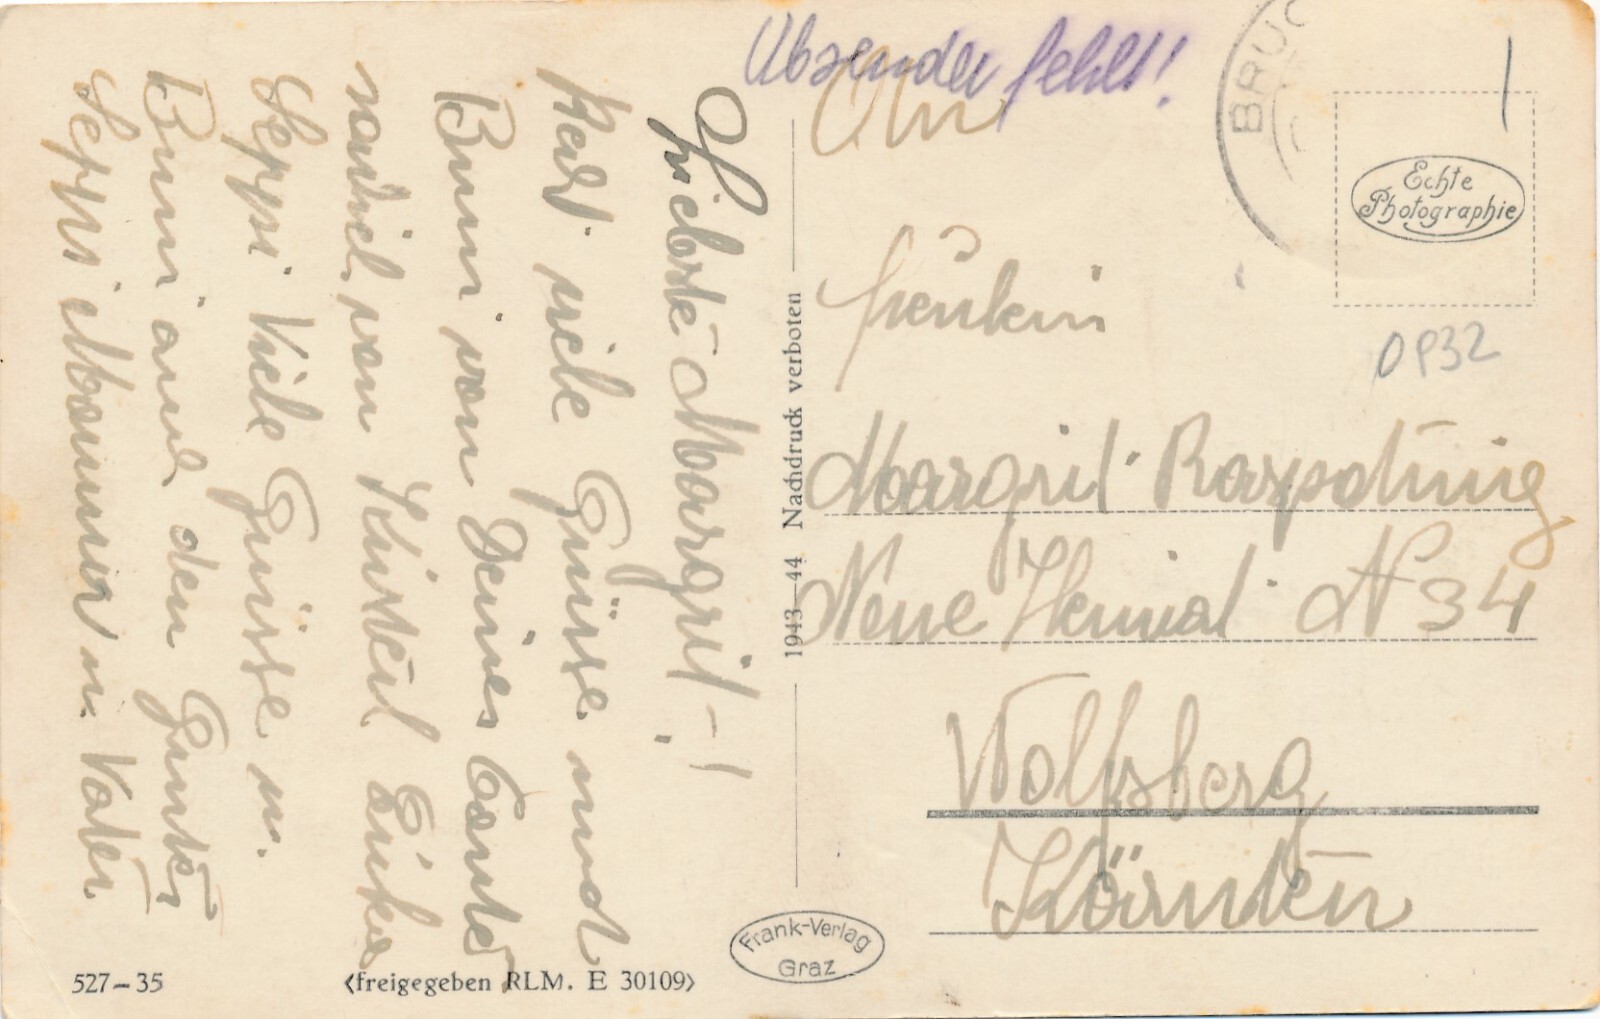 Liebste Margrit!
Hast viele Grüsse und
Bussi von Deiner Tante
von
Seppi. Viele Grüsse u.
Bussi auch den Gunter
Seppi Mamma u. Vater.
Absender fehlt!
An
Fräulein
Margrit
Neue Heimat N 34
Wolfsberg
Kärnten
BRUC
Echte
Photographie
OP32
1943—44 Nachdruck verboten
Frank-Verlag
Graz
527–35
<freigegeben RLM. E 30109>